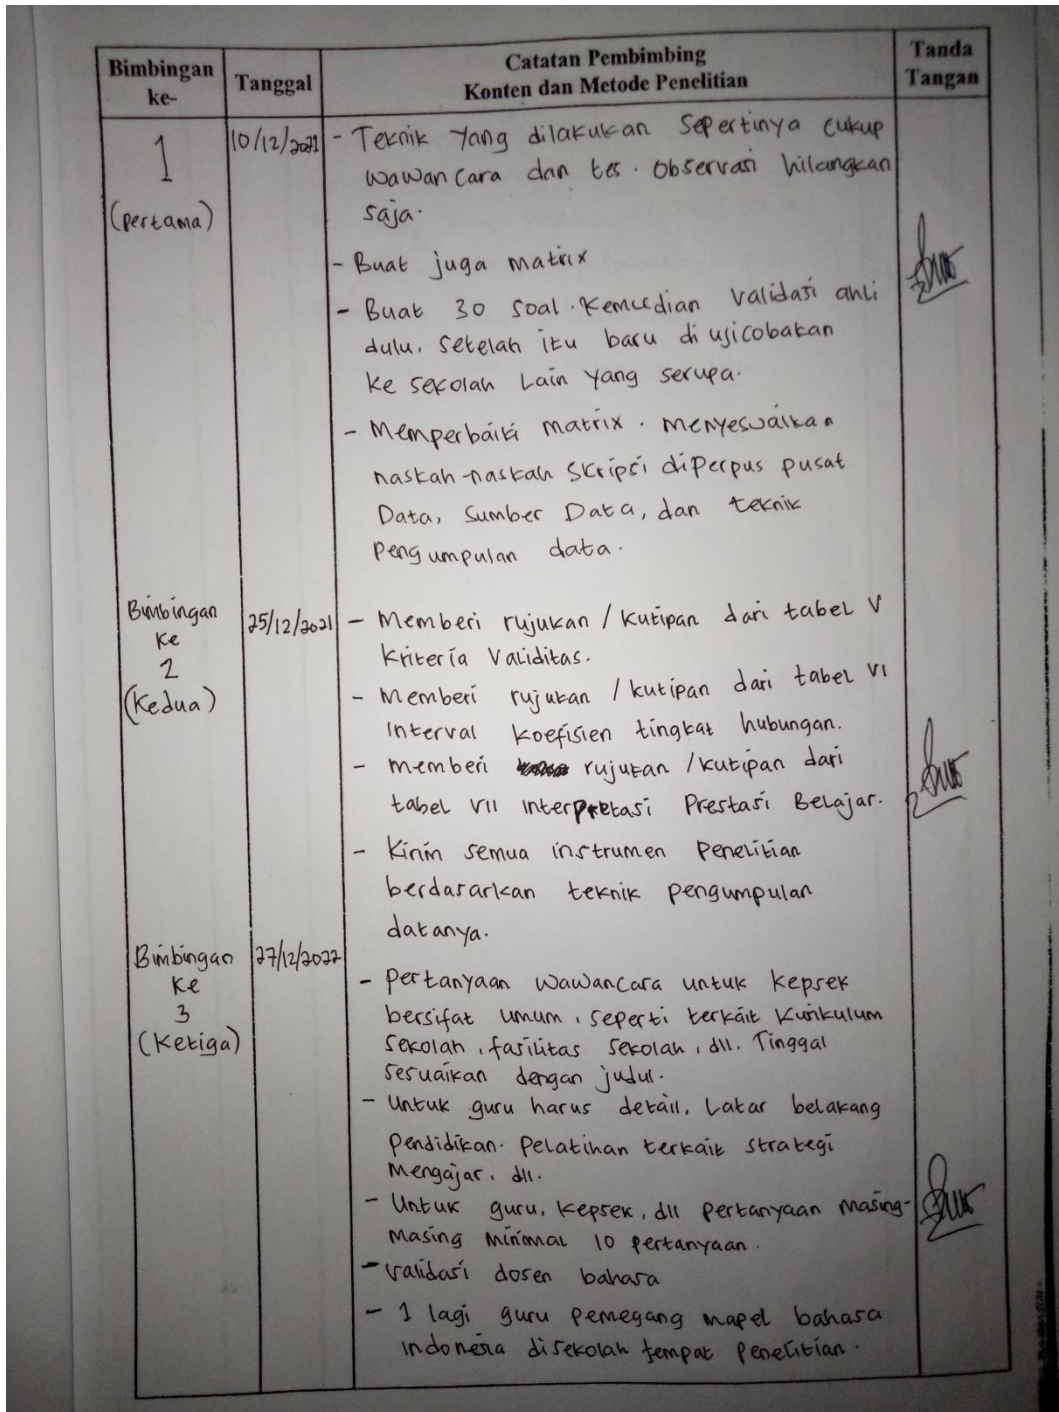 Bimbingan ke-
Tanggal
Catatan Pembimbing
Konten dan Metode Penelitian
Tanda Tangan
1
(pertama)
10/12/2021
- Teknik yang dilakukan Sepertinya cukup
wawancara dan tes. Observasi hilangkan
saja.
- Buat juga matrix
- Buat 30 soal. Kemudian validasi ahli
dulu, setelah itu baru di ujicobakan
ke sekolah Lain yang serupa.
- Memperbaiki matrix. menyesuaikan
naskah-naskah Skripsi diperpus pusat
Data, Sumber Data, dan teknik
Pengumpulan data.
Bimbingan
ke
2
(Kedua)
25/12/2021
- Memberi rujukan / kutipan dari tabel V
Kriteria Validitas.
- Memberi rujukan / kutipan dari tabel VI
Interval koefisien tingkat hubungan.
- memberi rujukan / kutipan dari
tabel VII Interpretasi Prestasi Belajar.
- Kirim semua instrumen Penelitian
berdasarkan teknik pengumpulan
datanya.
Bimbingan
ke
3
(Ketiga)
27/12/2022
- Pertanyaan wawancara untuk kepsek
bersifat umum, seperti terkait Kurikulum
Sekolah, fasilitas sekolah, dll. Tinggal
sesuaikan dengan judul.
- Untuk guru harus detail. Latar belakang
Pendidikan. Pelatihan terkait strategi
Mengajar. dll.
- Untuk guru, kepsek, dll pertanyaan masing-
masing minimal 10 pertanyaan.
- validasi dosen bahasa
- 1 lagi guru pemegang mapel bahasa
indonesia disekolah tempat penelitian.